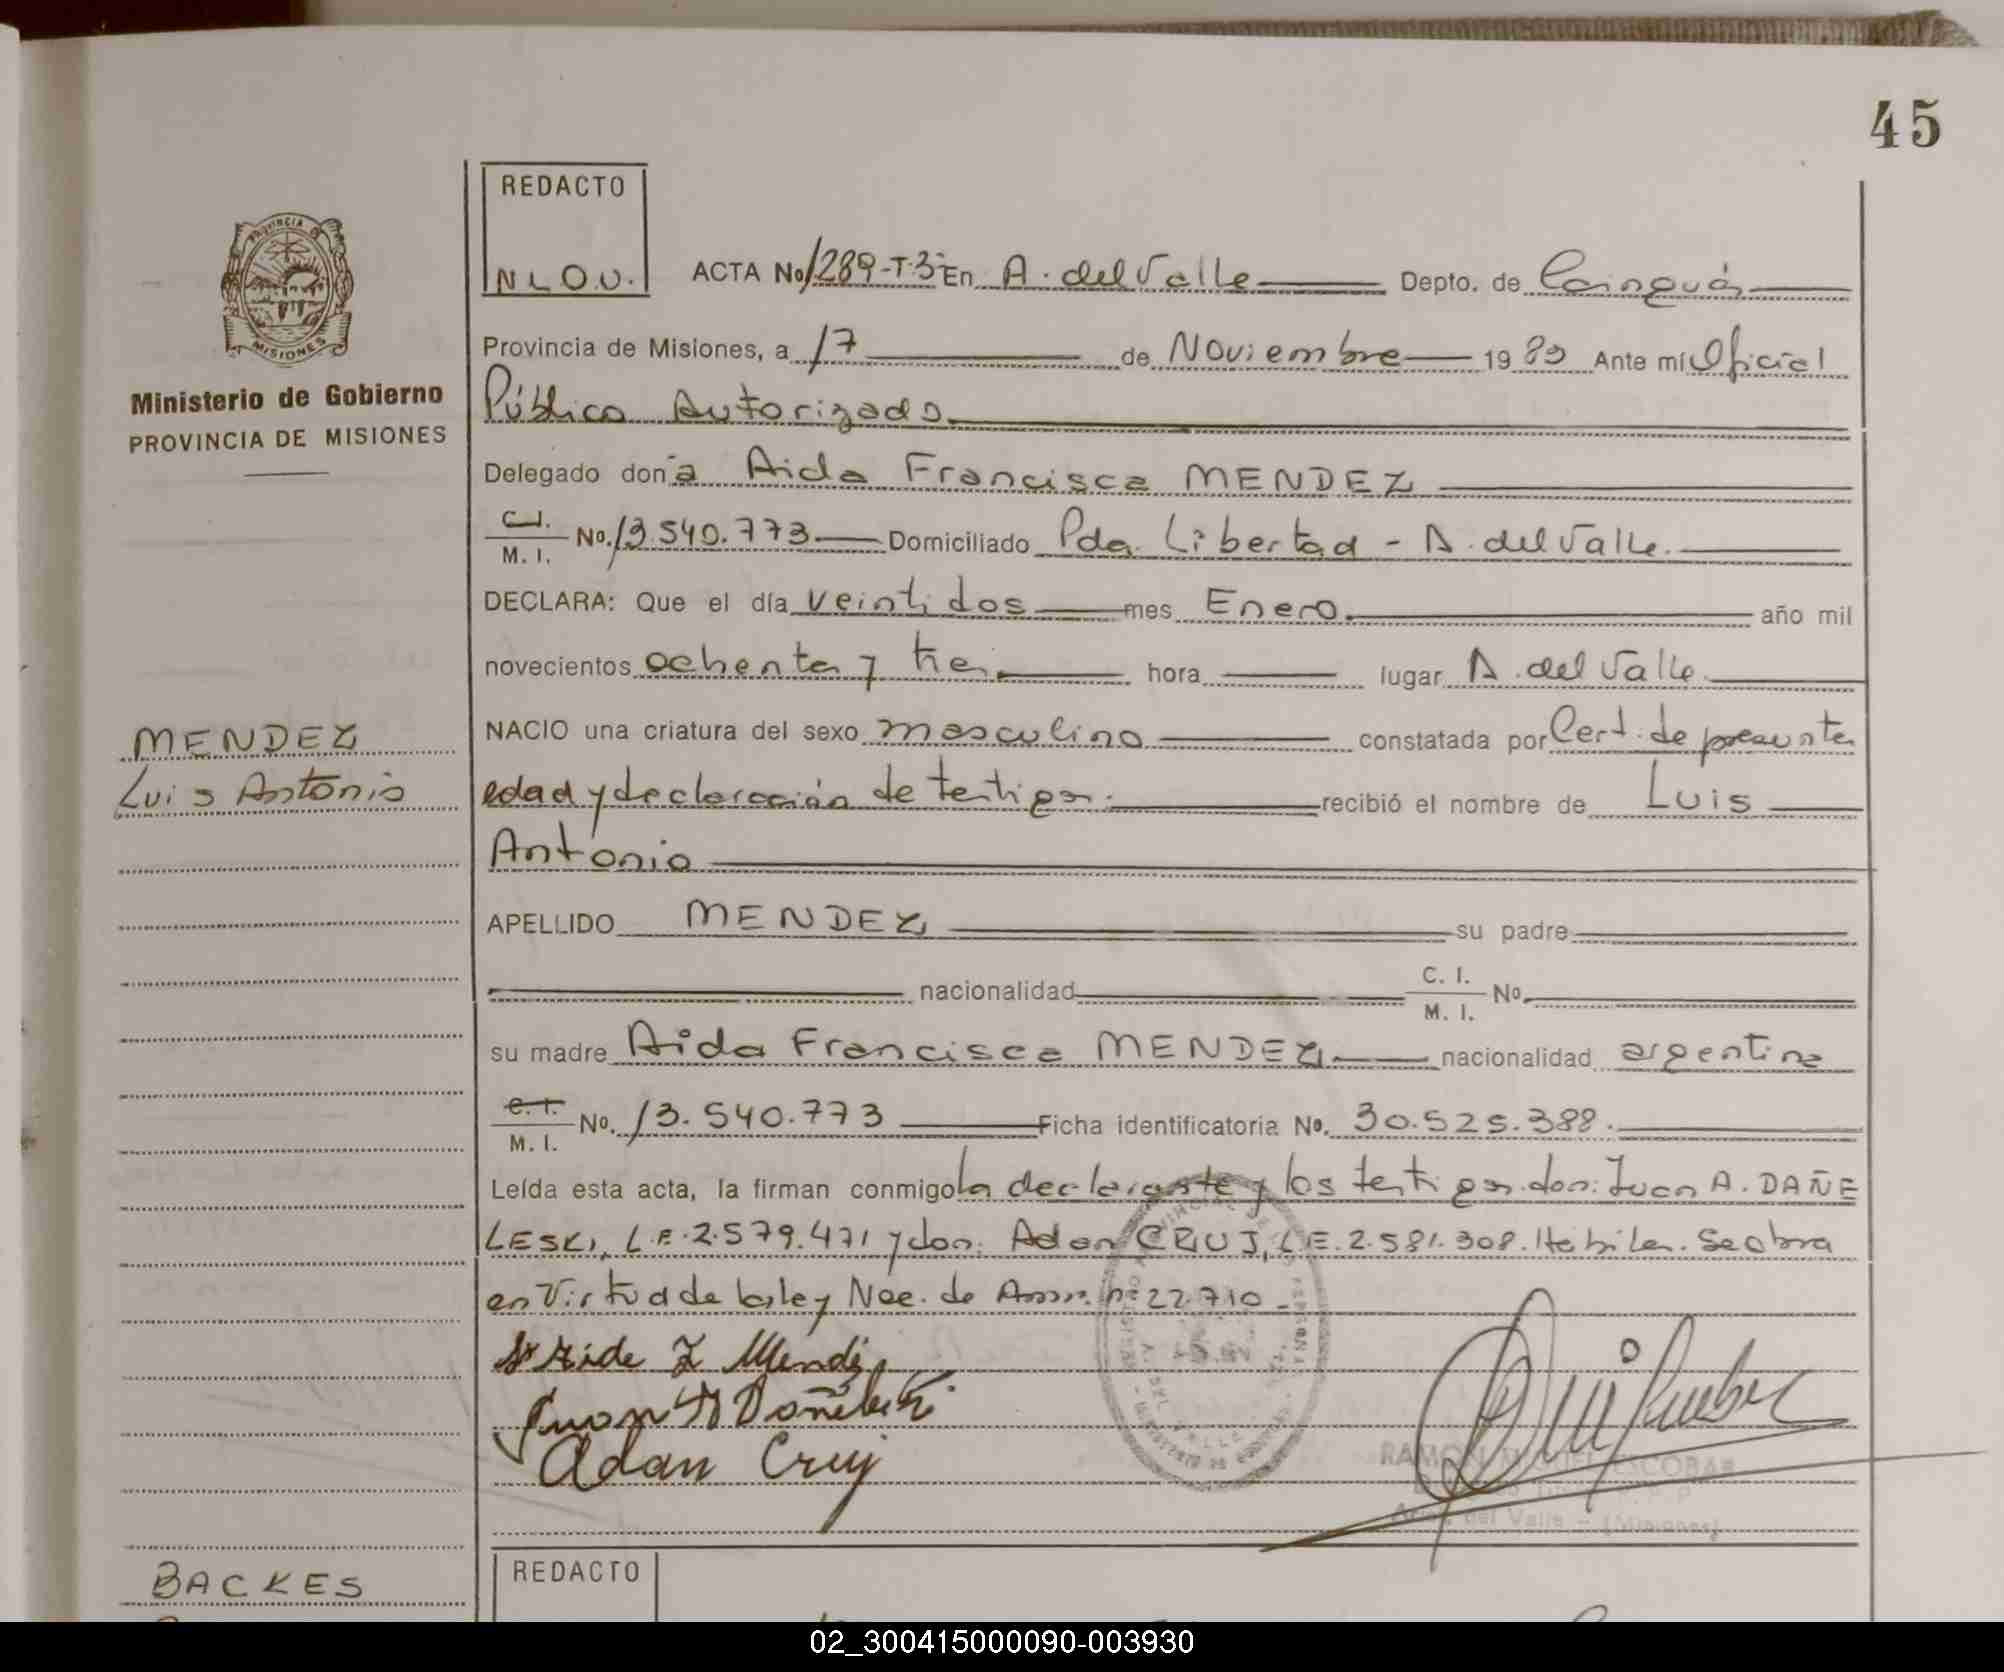 45
REDACTO
N L O.V.
PROVINCIA DE
MISIONES
Ministerio de Gobierno
PROVINCIA DE MISIONES
ACTA No 1289-T.3º En A. del Valle Depto. de Cainguás
Provincia de Misiones, a 17 de Noviembre 1989 Ante mí Oficial
Público Autorizado
Delegado don a Aida Francisca MENDEZ
C.I. M. I. No. 13.540.773 Domiciliado Pda. Libertad - A. del Valle.
DECLARA: Que el día veintidos mes Enero. año mil
novecientos ochenta y tres hora lugar A. del Valle
NACIO una criatura del sexo masculino constatada por Cert. de presunta
MENDEZ
Luis Antonio
edad y declaración de testigos. recibió el nombre de Luis
Antonio
APELLIDO MENDEZ su padre
nacionalidad C. I. M. I. No.
su madre Aida Francisca MENDEZ nacionalidad argentina
C. I. M. I. No. 13.540.773 Ficha identificatoria No. 30.525.388.
Leída esta acta, la firman conmigo la declarante y los testigos don: Juan A. DAÑE
LESKI, L.E. 2.579.471 y don: Adan CRUJ, L.E. 2.581.308. Hábiles. Se obra
en Virtud de la ley Nac. de Amn. nº 22.710
Aide F Mendez
Juan A Dañeleski
Adan Cruj
RAMON MIGUEL ESCOBAR
del Valle - (Misiones)
BACKES
REDACTO
02_300415000090-003930